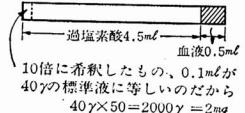 過塩素酸4.5ml
血液0.5ml
10倍に希釈したもの、0.1mlが
40γの標準液に等しいのだから
40γ×50=2000γ=2mg